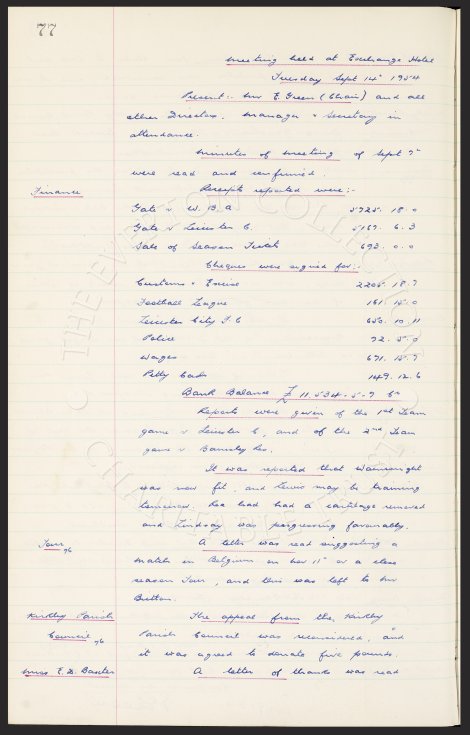 77
Meeting held at Exchange Hotel
Tuesday Sept 14th 1954
Present:- Mr E. Green (Chair) and all
other Directors, Manager & Secretary in
attendance.
Minutes of meeting of Sept 7th
were read and confirmed.
Finance
Receipts reported were:-
Gate v. W. B. A. 5725. 18. 0
Gate v Leicester C. 5169. 6. 3
Sale of Season Tickets 693. 0. 0
Cheques were signed for:-
Customs & Excise 2205. 18. 7
Football League 161. 15. 0
Leicester City F.C 650. 10. 11
Police 72. 5. 0
Wages 671. 15. 7
Petty Cash 149. 12. 6
Bank Balance £ 11,534. 5. 9 Cr
Reports were given of the 1st Team
game v Leicester C, and of the 2nd Team
game v Barnsley Res.
It was reported that Wainwright
was now fit, and Lewis may be training
tomorrow. Rea had had a cartilage removed
and Lindsay was progressing favourably.
Tour
76
A letter was read suggesting a
match in Belgium on Nov 11th or a close
season Tour, and this was left to Mr
Britton.
Kirkby Parish
Council 76
The appeal from the Kirkby
Parish Council was reconsidered, and
it was agreed to donate five pounds.
Miss E. D. Baxter
A letter of thanks was read
THE EVERTON COLLECTION
CHARITABLE TRUST